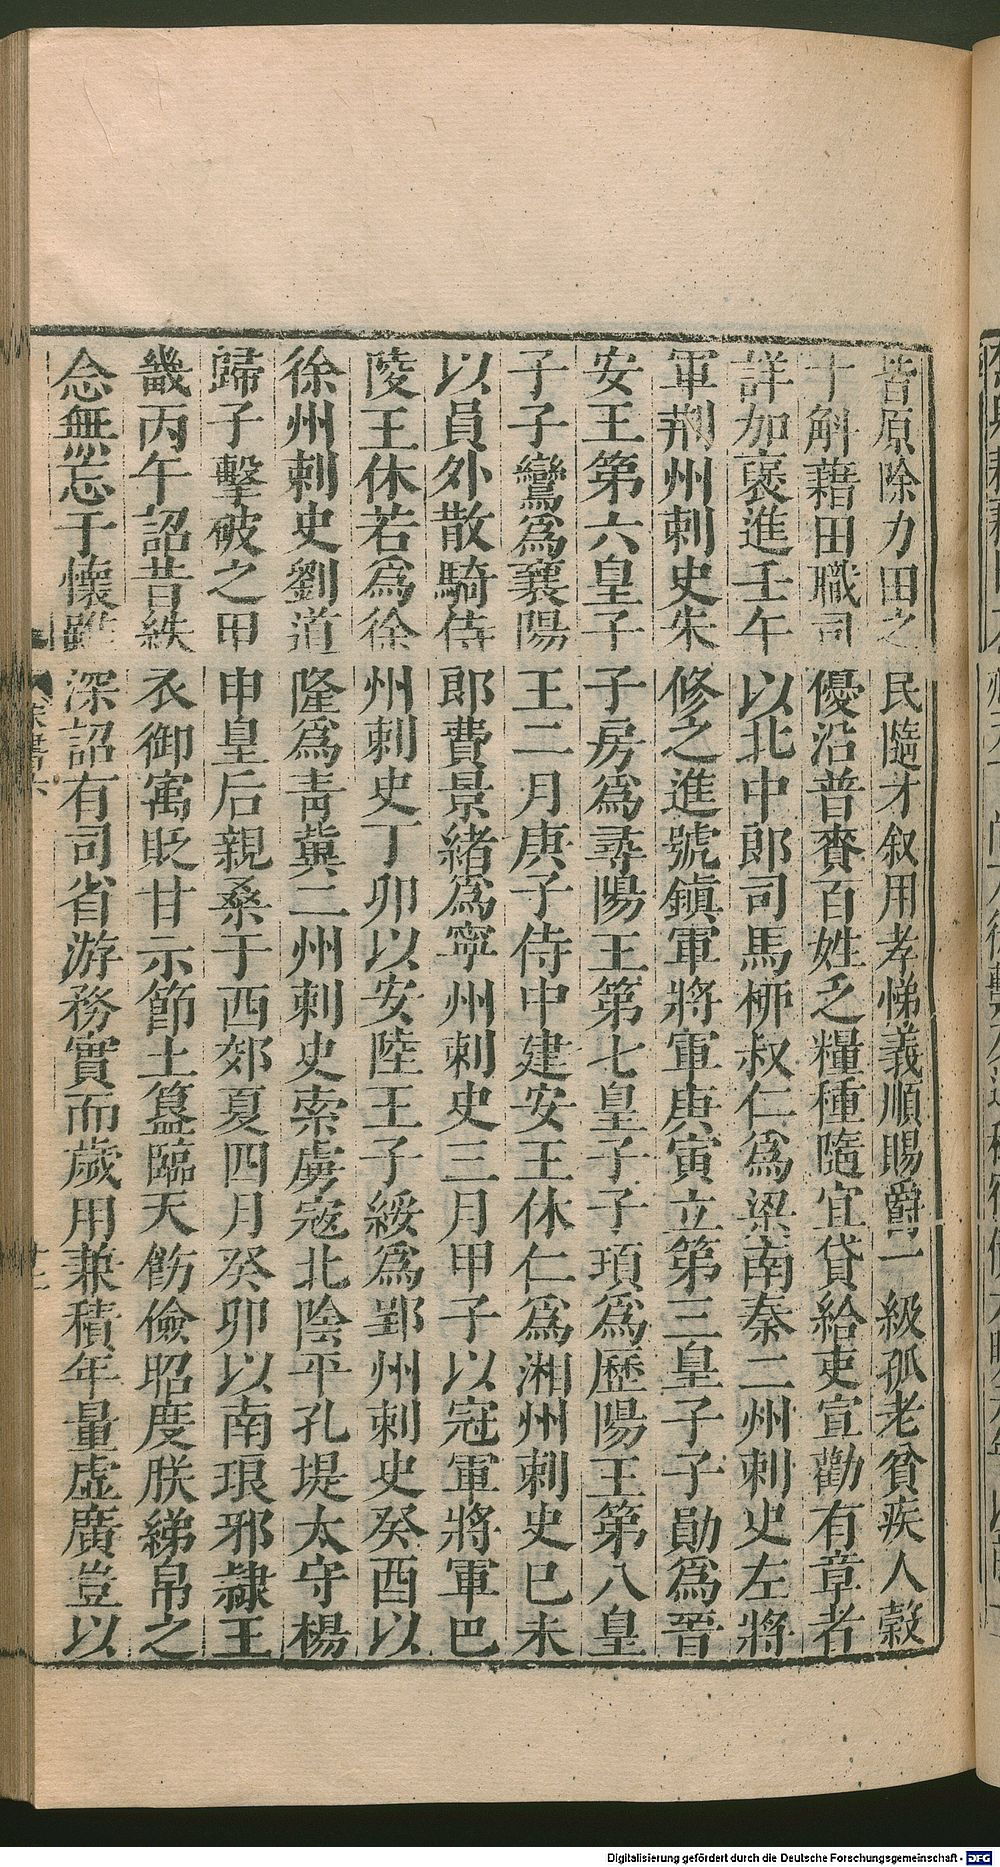 皆原除力田之民隨才叙用孝悌義順賜爵一級孤老貧疾人穀
十斛藉田職司優沿普賚百姓乏糧種隨宜貸給吏宣勸有章者
詳加褒進壬午以北中郎司馬柳叔仁爲梁南秦二州刺史左將
軍荆州刺史朱修之進號鎮軍將軍庚寅立第三皇子子勛爲晋
安王第六皇子子房爲尋陽王第七皇子子項爲歷陽王第八皇
子子鸞爲襄陽王二月庚子侍中建安王休仁爲湘州刺史巳未
以員外散騎侍郎費景緒爲寧州刺史三月甲子以冠軍將軍巴
陵王休若爲徐州刺史丁卯以安陸王子綏爲郢州刺史癸酉以
徐州刺史劉道隆爲青冀二州刺史索虜寇北陰平孔堤太守楊
歸子擊破之甲申皇后親桑于西郊夏四月癸卯以南琅邪隷王
畿丙午詔昔紩衣御寓貶甘示節土簋臨天飭儉昭度朕綈帛之
念無忘于懷雖深詔有司省游務實而歲用兼積年量虛廣豈以
宋書六
Digitalisierung gefördert durch die Deutsche Forschungsgemeinschaft - DFG